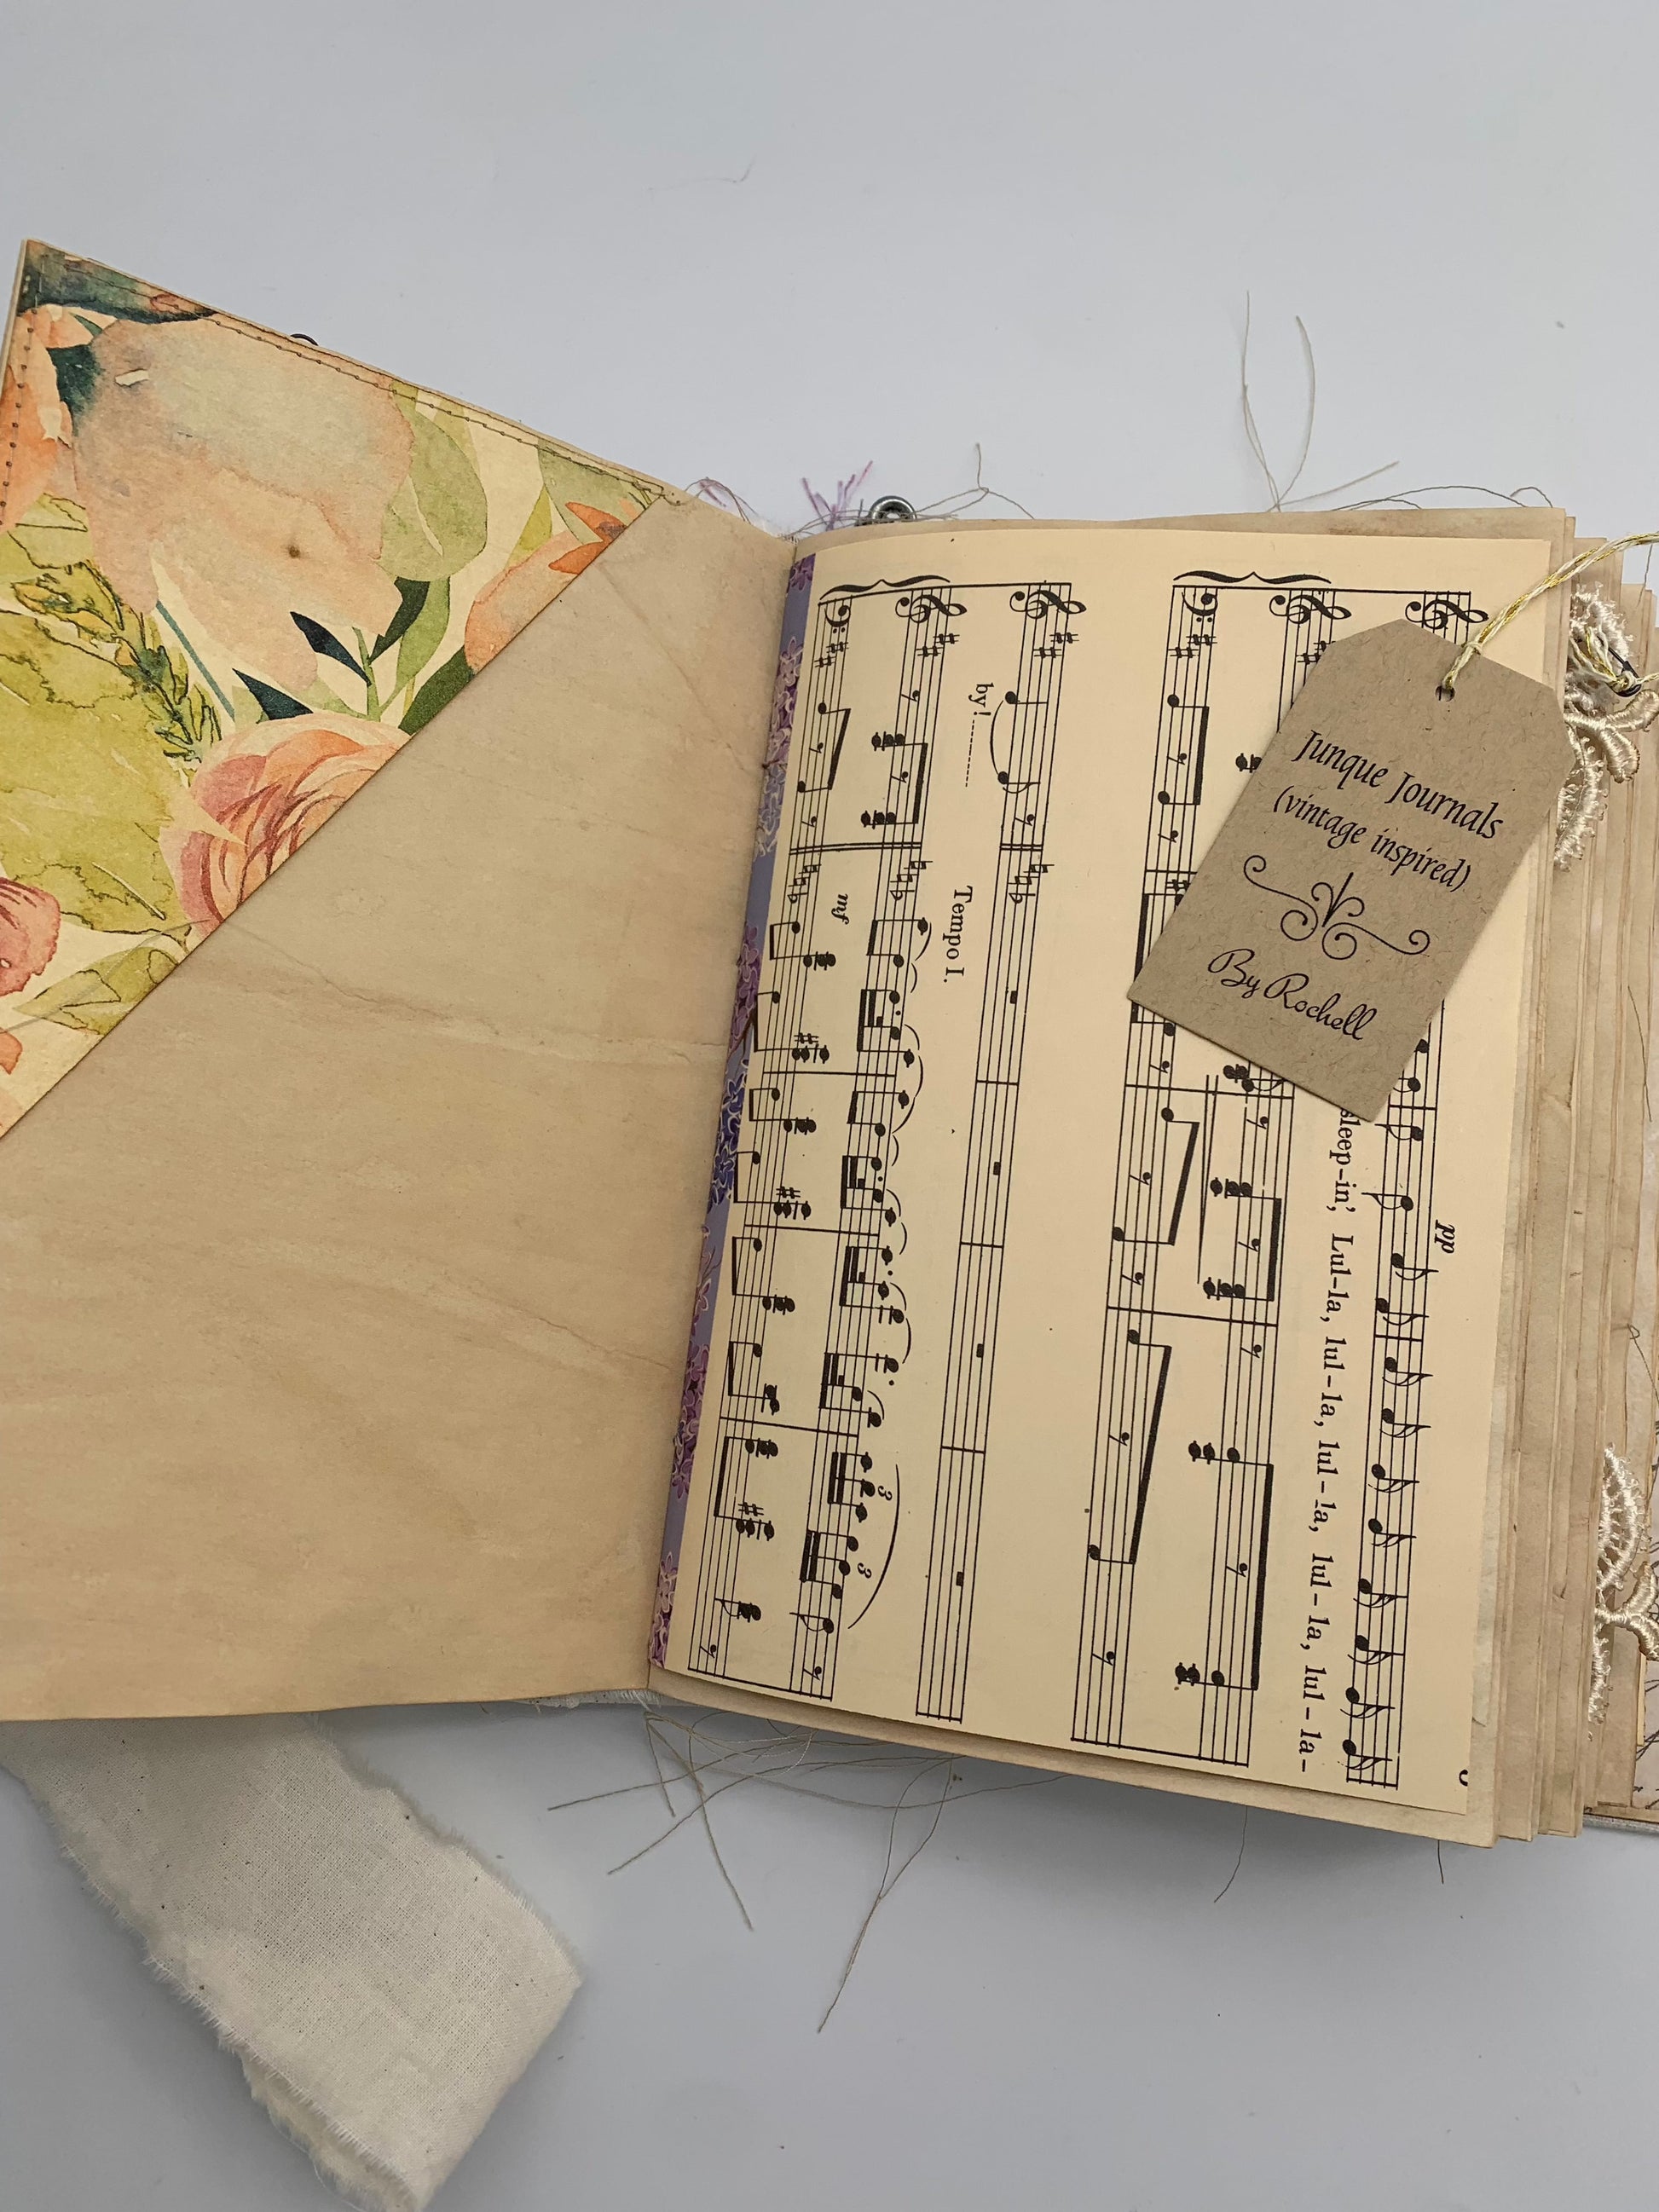 Junque Journals
(vintage inspired)
By Rochell
pp
sleep-in', Lul-la, lul-la, lul-la, lul-la, lul-la, lul-la-
by!
Tempo I.
mf
3
3